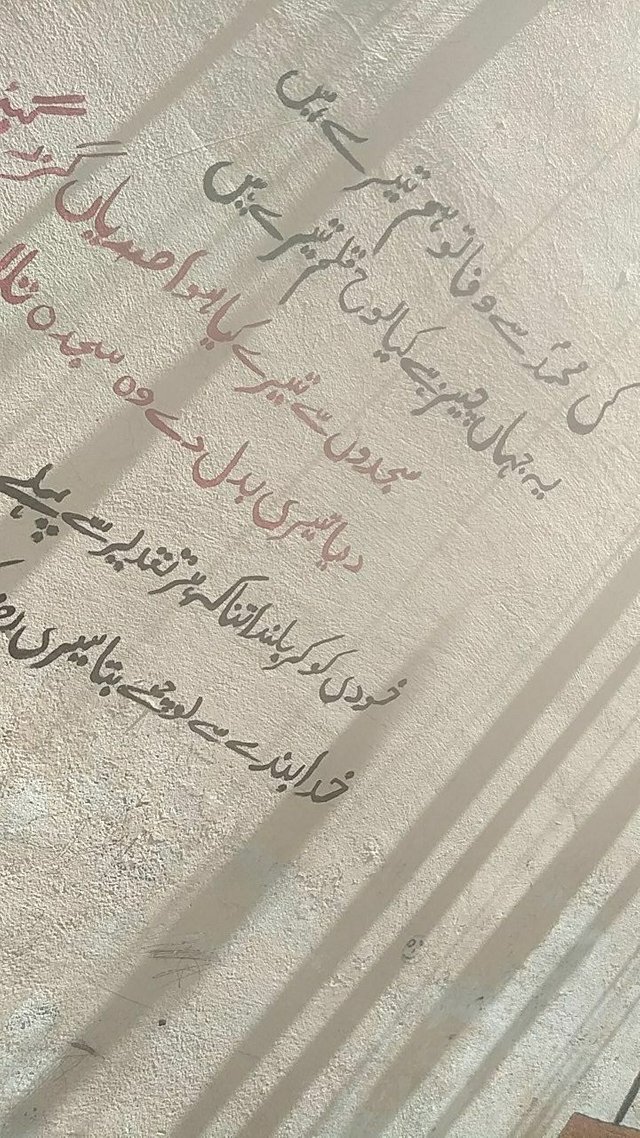 کی محمدؐ سے وفا تو ہم تیرے ہیں
یہ جہاں چیز ہے کیا لوح قلم تیرے ہیں
سجدوں سے تیرے کیا ہوا صدیاں گزر گئیں
دنیا تیری بدل دے وہ سجدہ
خودی کو کر بلند اتنا کہ ہر تقدیر سے پہلے
خدا بندے سے پوچھے بتا تیری